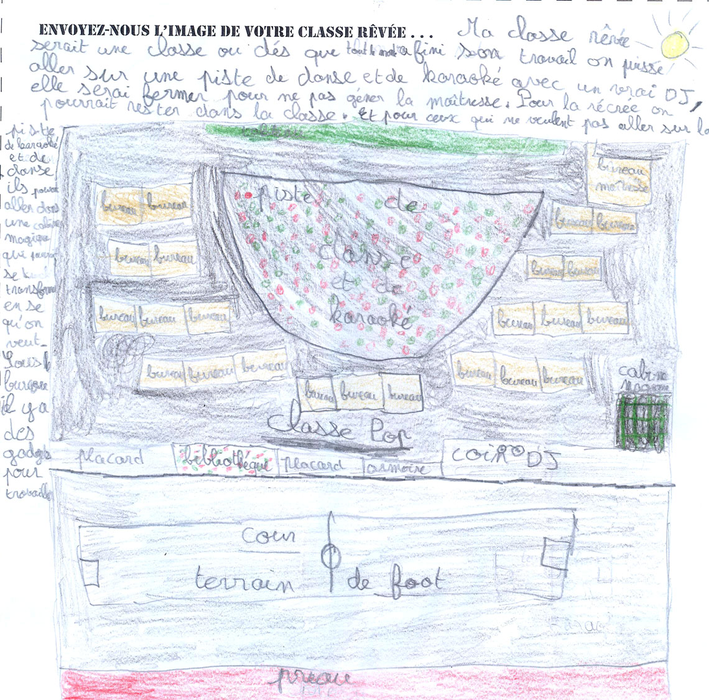 ENVOYEZ-NOUS L'IMAGE DE VOTRE CLASSE RÊVÉE . . . Ma classe rêvée
serait une classe ou dés que tout le monde a fini son travail on puisse
aller sur une piste de danse et de karaoké avec un vrai DJ,
elle serai fermer pour ne pas géner la maîtresse. Pour la récrée on
pourrait rester dans la classe. Et pour ceux qui ne veulent pas aller sur la
piste
de karaoké
et de
danse
ils
aller dans
une
magique
qui
se
transforme
en ce
qu'on
veut.
Sous le
bureau
il y a
des
gadgets
pour
travailler
tableau
bureau maîtresse
bureau bureau
piste de
danse
et de
karaoké
bureau bureau
bureau bureau
bureau bureau
bureau bureau bureau
bureau bureau bureau
bureau bureau bureau
bureau bureau bureau
bureau bureau bureau
cabine
magique
Classe Pop
placard bibliothéque placard armoire coin DJ
cour
terrain de foot
préau